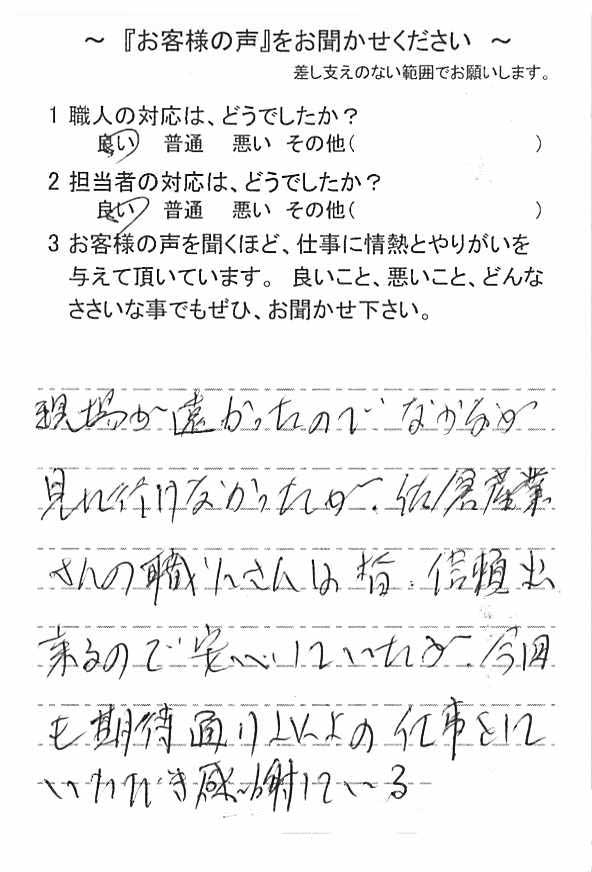 ～ 『お客様の声』をお聞かせください ～
差し支えのない範囲でお願いします。
1 職人の対応は、どうでしたか？
良い 普通 悪い その他( )
2 担当者の対応は、どうでしたか？
良い 普通 悪い その他( )
3 お客様の声を聞くほど、仕事に情熱とやりがいを
与えて頂いています。 良いこと、悪いこと、どんな
ささいな事でもぜひ、お聞かせ下さい。
現場が遠かったのでなかなか
見に行けなかったが、佐倉産業
さんの職人さんは皆、信頼出
来るので安心していたが、今回
も期待通り以上の仕事をして
いただき感謝している